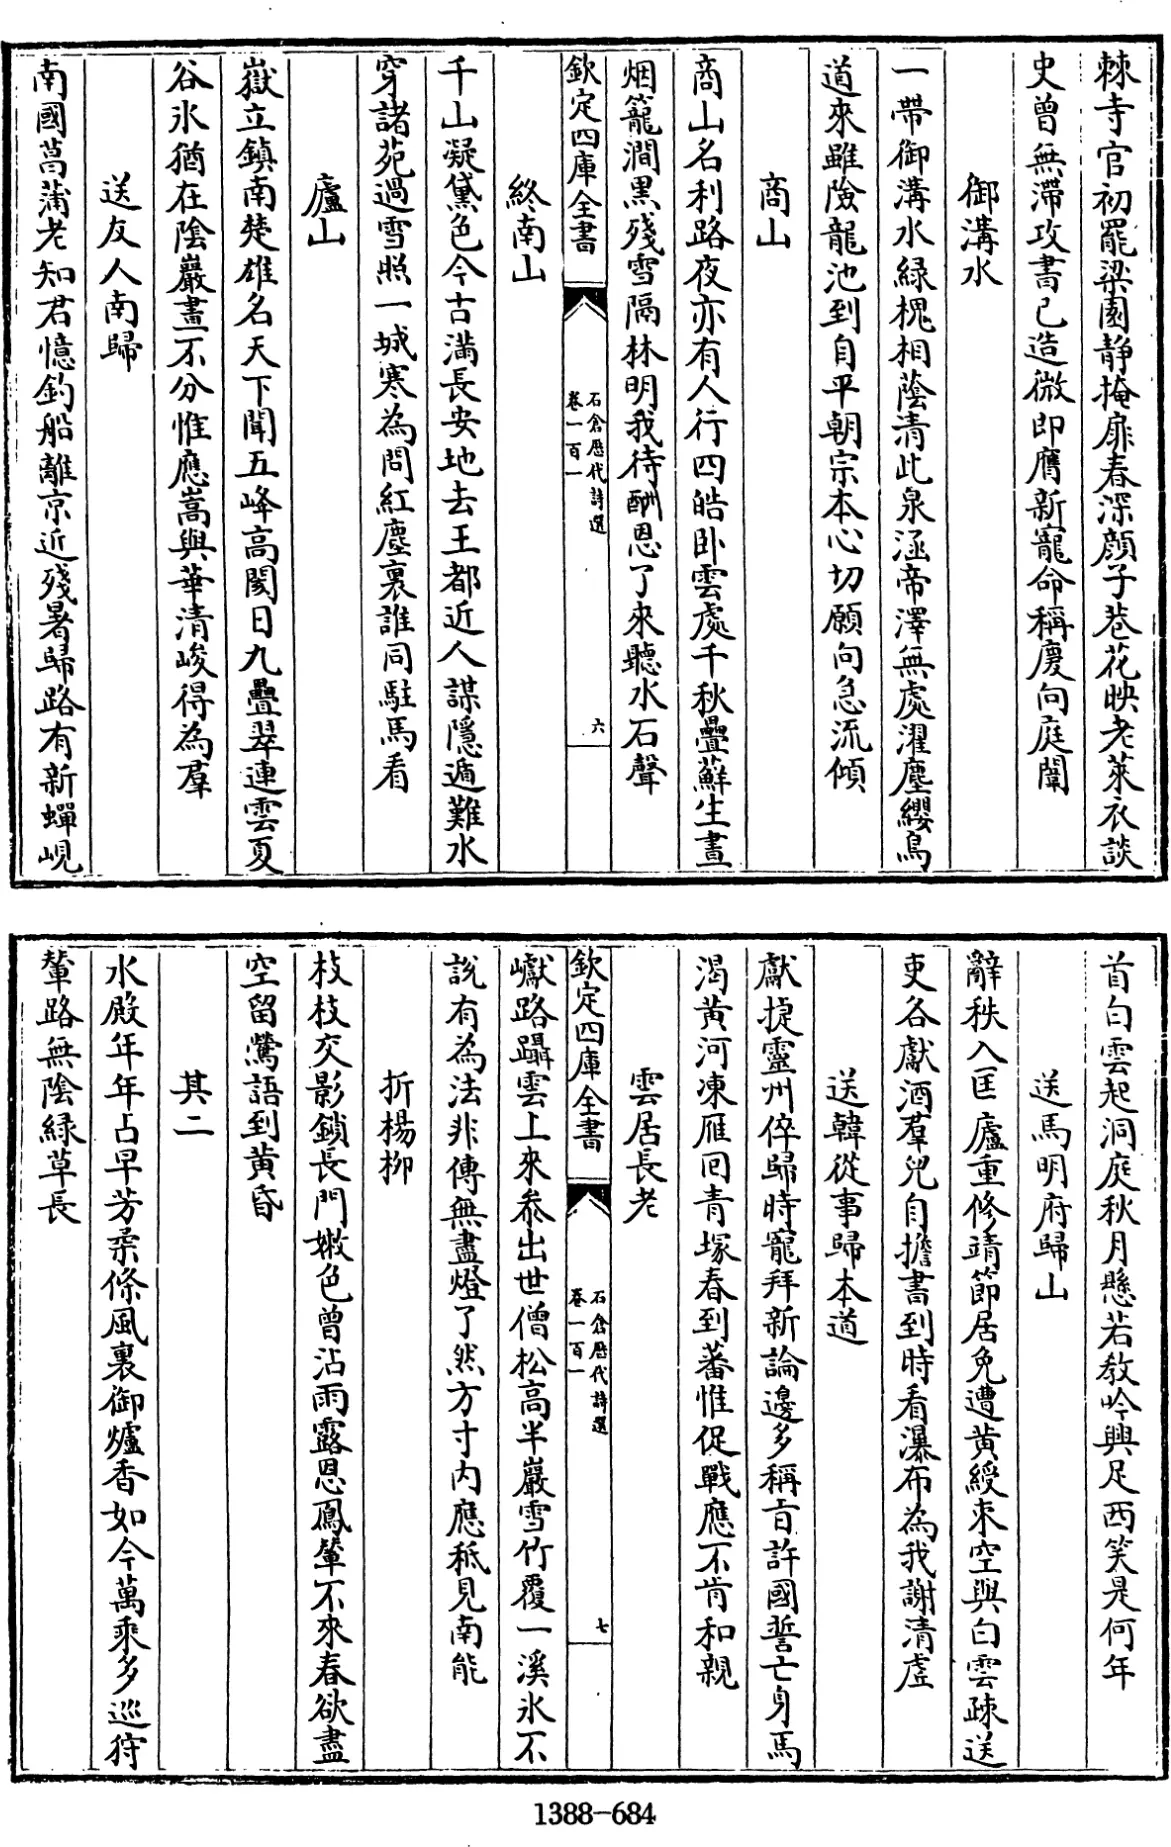 棘寺官初罷梁園静掩扉春深顔子巷花映老萊衣談
史曾無滯攻書已造微即膺新寵命稱慶向庭闈
御溝水
一帶御溝水緑槐相蔭清此泉涵帝澤無處濯塵纓鳥
道來雖險龍池到自平朝宗本心切願向急流傾
商山
商山名利路夜亦有人行四皓卧雲處千秋疊蘚生晝
烟籠澗黒殘雪隔林明我待酬恩了來聽水石聲
欽定四庫全書
石倉歷代詩選
卷一百一
六
終南山
千山凝黛色今古滿長安地去王都近人謀隱遁難水
穿諸苑過雪照一城寒為問紅塵裏誰同駐馬看
廬山
嶽立鎮南楚雄名天下聞五峰高閡日九疊翠連雲夏
谷氷猶在陰巖晝不分惟應嵩與華清峻得為羣
送友人南歸
南國菖蒲老知君憶釣船離京近殘暑歸路有新蟬峴
首白雲起洞庭秋月懸若教吟興足西笑是何年
送馬明府歸山
辭秩入匡廬重修靖節居免遭黄綬束空與白雲疎送
吏各獻酒羣兒自擔書到時看瀑布為我謝清虚
送韓從事歸本道
獻捷靈州倅歸時寵拜新論邊多稱㫖許國誓亡身馬
渴黄河凍雁囘青塚春到蕃惟促戰應不肯和親
雲居長老
欽定四庫全書
石倉歷代詩選
卷一百一
七
巘路躡雲上來叅出世僧松高半巖雪竹覆一溪氷不
說有為法非傳無盡燈了然方寸内應秪見南能
折楊栁
枝枝交影鎖長門嫩色曾沾雨露恩鳳輦不來春欲盡
空留鶯語到黄昏
其二
水殿年年占早芳柔條風裏御爐香如今萬乘多巡狩
輦路無陰緑草長
1388-684